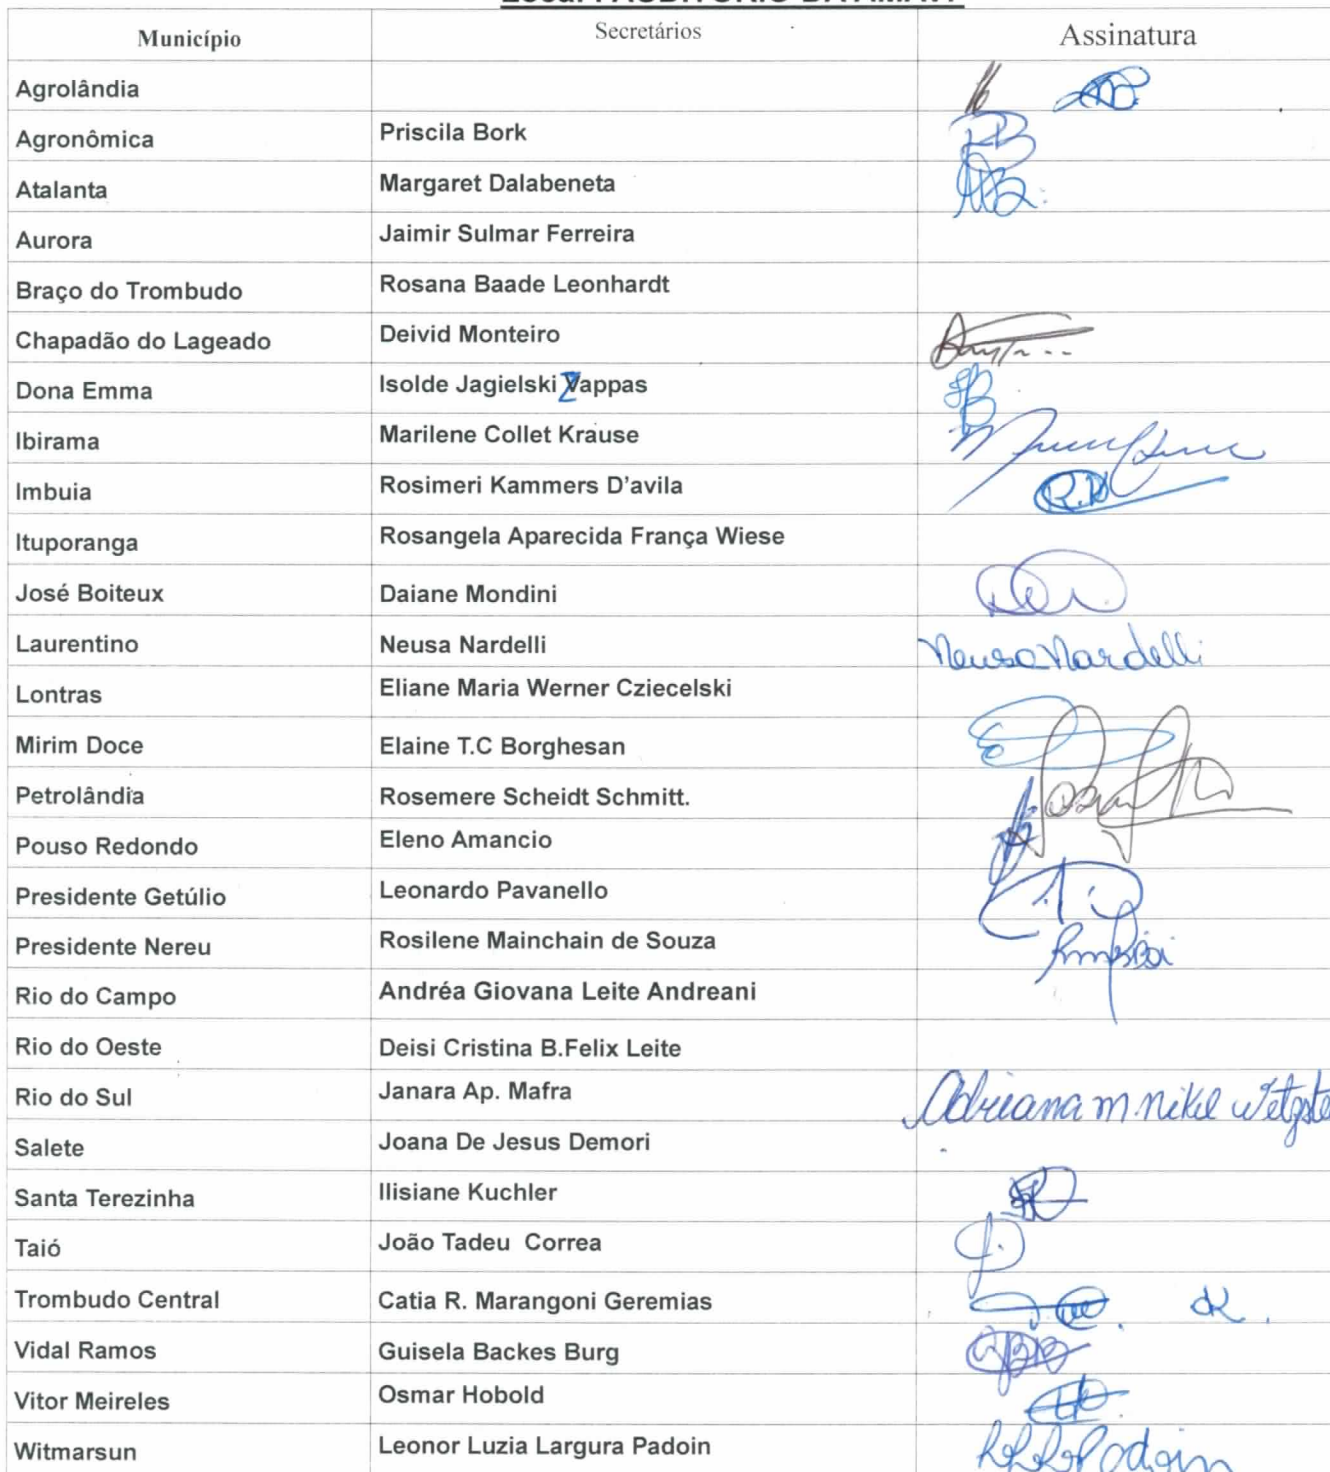 Município Secretários Assinatura
Agrolândia
Agronômica Priscila Bork
Atalanta Margaret Dalabeneta
Aurora Jaimir Sulmar Ferreira
Braço do Trombudo Rosana Baade Leonhardt
Chapadão do Lageado Deivid Monteiro
Dona Emma Isolde Jagielski Zappas
Ibirama Marilene Collet Krause
Imbuia Rosimeri Kammers D’avila R.K
Ituporanga Rosangela Aparecida França Wiese
José Boiteux Daiane Mondini
Laurentino Neusa Nardelli Neusa Nardelli
Lontras Eliane Maria Werner Cziecelski
Mirim Doce Elaine T.C Borghesan
Petrolândia Rosemere Scheidt Schmitt.
Pouso Redondo Eleno Amancio
Presidente Getúlio Leonardo Pavanello
Presidente Nereu Rosilene Mainchain de Souza
Rio do Campo Andréa Giovana Leite Andreani
Rio do Oeste Deisi Cristina B.Felix Leite
Rio do Sul Janara Ap. Mafra Adriana m
Salete Joana De Jesus Demori
Santa Terezinha Ilisiane Kuchler
Taió João Tadeu Correa
Trombudo Central Catia R. Marangoni Geremias
Vidal Ramos Guisela Backes Burg
Vitor Meireles Osmar Hobold
Witmarsun Leonor Luzia Largura Padoin